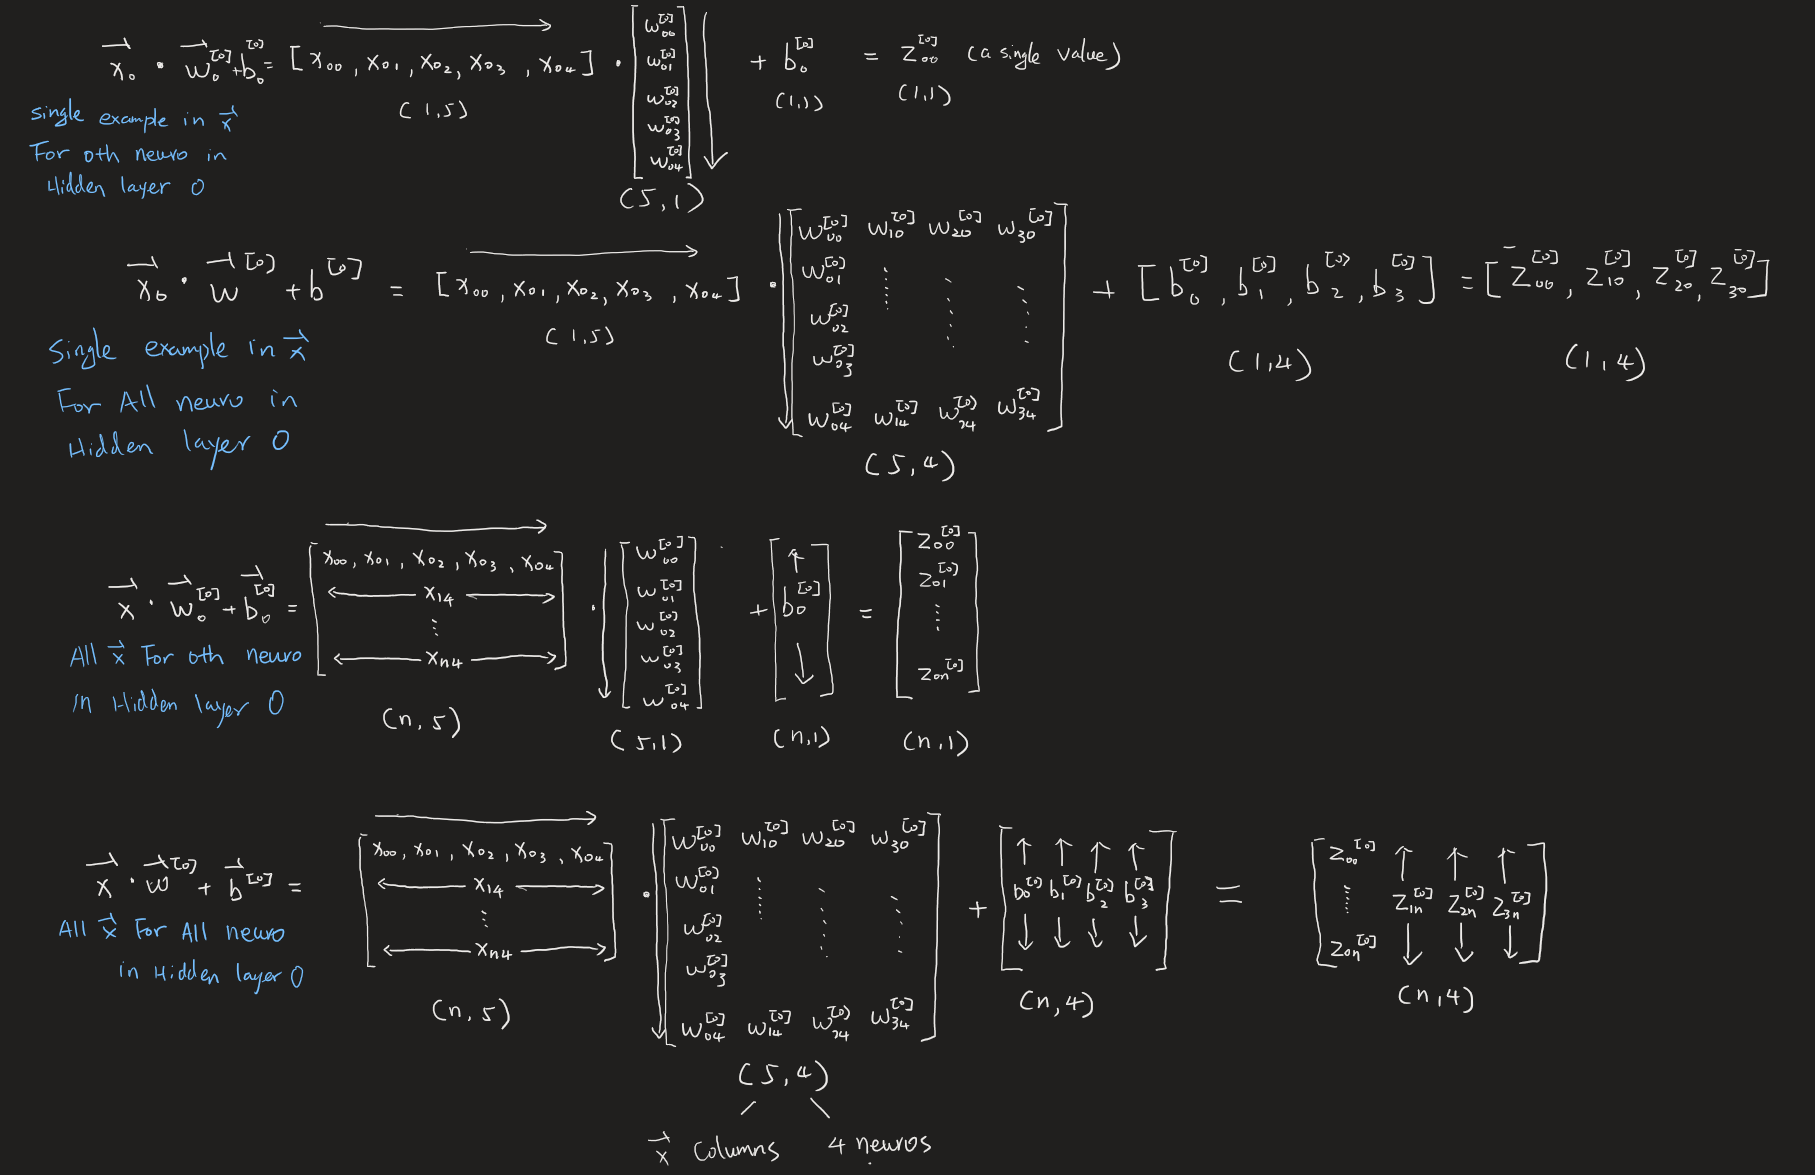 x₀ · w₀^[0] + b₀^[0] = [x₀₀, x₀₁, x₀₂, x₀₃, x₀₄] · [w₀₀^[0] w₀₁^[0] w₀₂^[0] w₀₃^[0] w₀₄^[0]] + b₀^[0] = z₀₀^[0] (a single value)
(1,5) (5,1) (1,1) (1,1)
single example in x
For 0th neuro in
Hidden layer 0
x₀ · w^[0] + b^[0] = [x₀₀, x₀₁, x₀₂, x₀₃, x₀₄] ·
w₀₀^[0] w₁₀^[0] w₂₀^[0] w₃₀^[0]
w₀₁^[0]
w₀₂^[0]
w₀₃^[0]
w₀₄^[0] w₁₄^[0] w₂₄^[0] w₃₄^[0]
+ [b₀^[0], b₁^[0], b₂^[0], b₃^[0]] = [z₀₀^[0], z₁₀^[0], z₂₀^[0], z₃₀^[0]]
(1,5) (5,4) (1,4) (1,4)
Single example in x
For All neuro in
Hidden layer 0
x · w₀^[0] + b₀^[0] =
x₀₀, x₀₁, x₀₂, x₀₃, x₀₄
x₁₄
⋮
xₙ₄
· [w₀₀^[0] w₀₁^[0] w₀₂^[0] w₀₃^[0] w₀₄^[0]] + [b₀^[0]] = [z₀₀^[0] z₀₁^[0] ⋮ z₀ₙ^[0]]
(n,5) (5,1) (n,1) (n,1)
All x For 0th neuro
in Hidden layer 0
x · w^[0] + b^[0] =
x₀₀, x₀₁, x₀₂, x₀₃, x₀₄
x₁₄
⋮
xₙ₄
·
w₀₀^[0] w₁₀^[0] w₂₀^[0] w₃₀^[0]
w₀₁^[0]
w₀₂^[0]
w₀₃^[0]
w₀₄^[0] w₁₄^[0] w₂₄^[0] w₃₄^[0]
+ [b₀^[0] b₁^[0] b₂^[0] b₃^[0]] =
z₀₀^[0]
⋮ z₁ₙ^[0] z₂ₙ^[0] z₃ₙ^[0]
z₀ₙ^[0]
(n,5) (5,4) (n,4) (n,4)
All x For All neuro
in Hidden layer 0
x columns 4 neuros